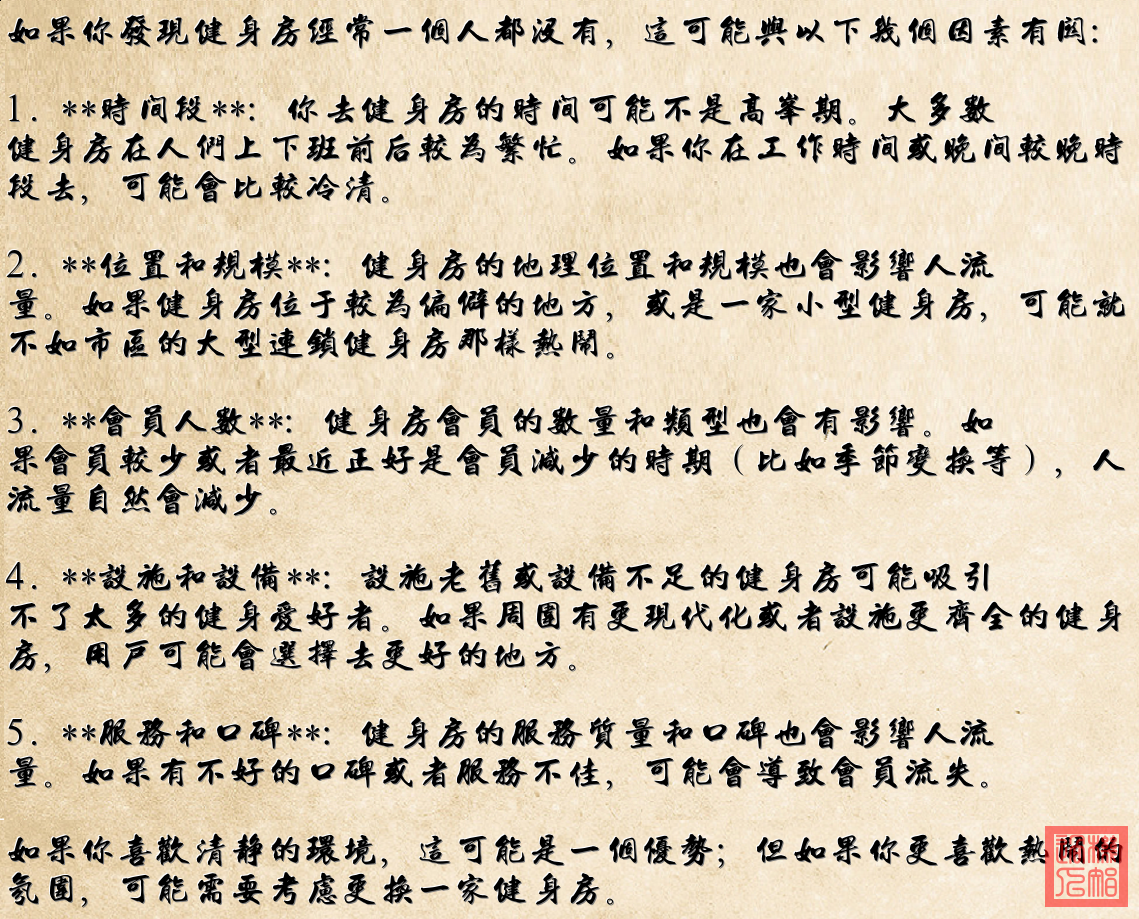 如果你發現健身房經常一個人都沒有，這可能與以下幾個因素有関：
1. **時间段**：你去健身房的時间可能不是高峯期。大多數
健身房在人們上下班前后較為繁忙。如果你在工作時间或晚间較晚時
段去，可能會比較冷清。
2. **位置和規模**：健身房的地理位置和規模也會影響人流
量。如果健身房位于較為偏僻的地方，或是一家小型健身房，可能就
不如市區的大型連鎖健身房那樣熱鬧。
3. **會員人數**：健身房會員的數量和類型也會有影響。如
果會員較少或者最近正好是會員減少的時期（比如季節變換等），人
流量自然會減少。
4. **設施和設備**：設施老舊或設備不足的健身房可能吸引
不了太多的健身愛好者。如果周圍有更現代化或者設施更齊全的健身
房，用戶可能會選擇去更好的地方。
5. **服務和口碑**：健身房的服務質量和口碑也會影響人流
量。如果有不好的口碑或者服務不佳，可能會導致會員流失。
如果你喜歡清靜的環境，這可能是一個優勢；但如果你更喜歡熱鬧的
氛圍，可能需要考慮更换一家健身房。